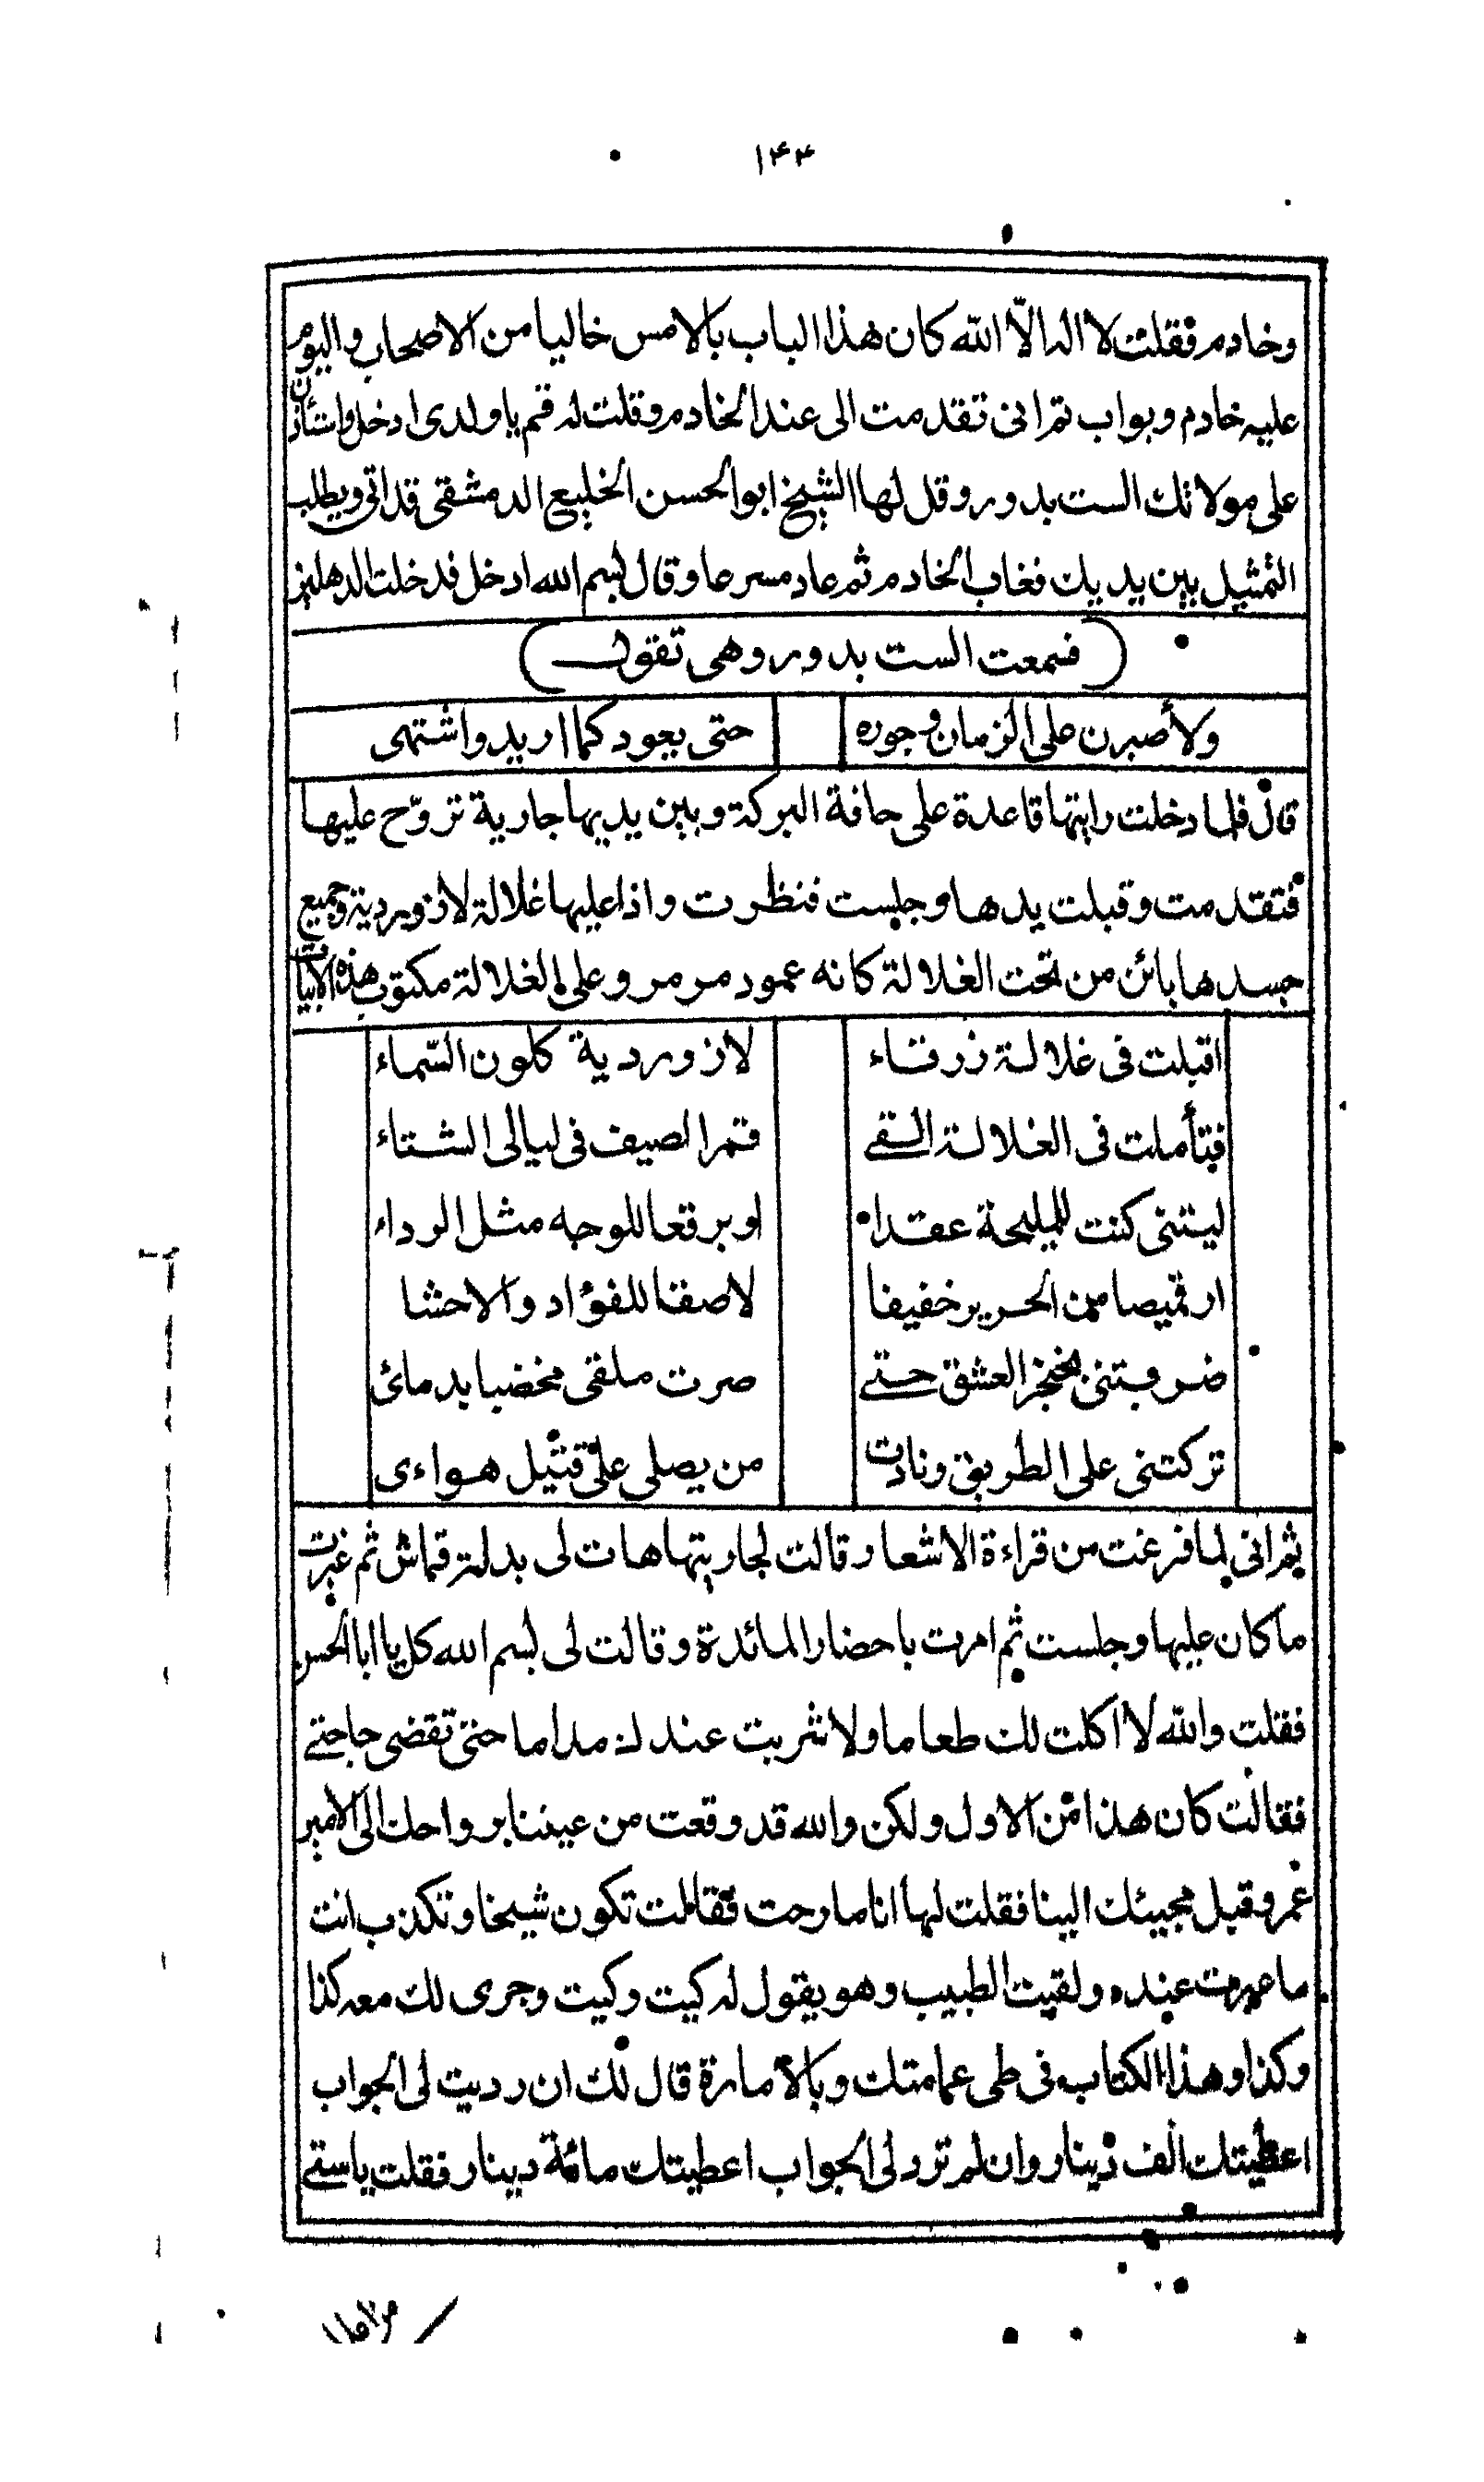 ١٤٤
وخادم فقلت لا اله الّا الله كان هذا الباب بالامس خاليا من الاصحاب واليوم
عليه خادم وبواب ثم انى تقدمت الى عند الخادم وقلت له قم يا ولدى ادخل واستأذن
على مولاتك الست بدور وقل لها الشيخ ابو الحسن الخليع الدمشقى قد اتى ويطلب
التمثيل بين يديك فغاب الخادم ثم عاد مسرعا وقال بسم الله ادخل فدخلت الدهليز
(فسمعت الست بدور وهى تقول)
ولأصبرن على الزمان وجوره حتى يعود كما اريد واشتهى
قال فلما دخلت رايتها قاعدة على حافة البركة وبين يديها جارية تروّح عليها
فتقدمت وقبلت يدها وجلست فنظرت واذا عليها غلالة لازوردية وجميع
جسدها بائن من تحت الغلالة كانه عمود مرمر وعلى الغلالة مكتوب هذه الابيات
اقبلت فى غلالة زرقاء لازوردية كلون السّماء
فتأملت فى الغلالة القى قمر الصيف فى ليالى الشتاء
ليتنى كنت للمليحة عقدا او برقعا للوجه مثل الرداء
ار قميصا من الحرير خفيفا لاصقا للفؤاد والاحشا
ضربتنى بخنجر العشق حتى صرت ملقى مخضبا بدمائ
تركتنى على الطريق ونادت من يصلى علىّ قتيل هواءى
ثم انى لما فرغت من قراءة الاشعار قالت لجاريتها هات لى بدلة قماش ثم غيرت
ما كان عليها وجلست ثم امرت باحضار المائدة وقالت لى بسم الله كل يا ابا الحسن
فقلت والله لا اكلت لك طعاما ولا شربت عندك مداما حتى تقضى حاجتى
فقالت كان هذا من الاول ولكن والله قد وقعت من عيننا برواحك الى الامير
عمرو قبل مجيئك الينا فقلت لها انا ما رحت فقالت تكون شيخا وتكذب انت
ما عبرت عنده ولقيت الطبيب وهو يقول له كيت وكيت وجرى لك معه كذا
وكذا وهذا الكتاب فى طى عمامتك وبالأمارة قال لك ان رديت لى الجواب
اعطيتك الف دينار وان لم ترد لى الجواب اعطيتك مائة دينار فقلت يا ستى